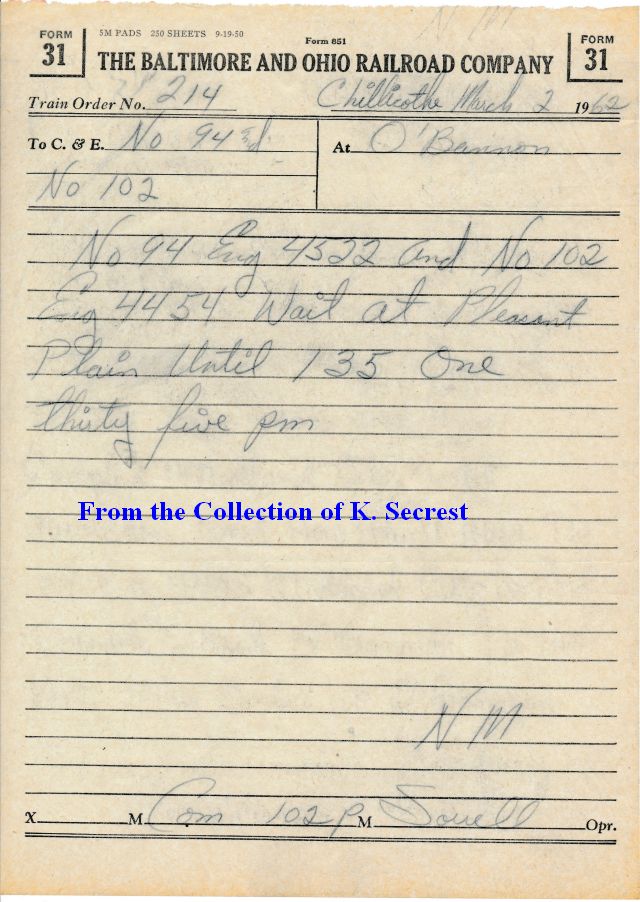 N M
FORM 31
5M PADS 250 SHEETS 9-19-50
Form 851
FORM 31
THE BALTIMORE AND OHIO RAILROAD COMPANY
Train Order No. 214 Chillicothe March 2 1962
To C. & E. No 94 Eng At O'Bannon
No 102
No 94 Eng 4522 and No 102
Eng 4454 Wait at Pleasant
Plain Until 135 One
thirty five pm
From the Collection of K. Secrest
N M
X M Com 102 P M Sowell Opr.